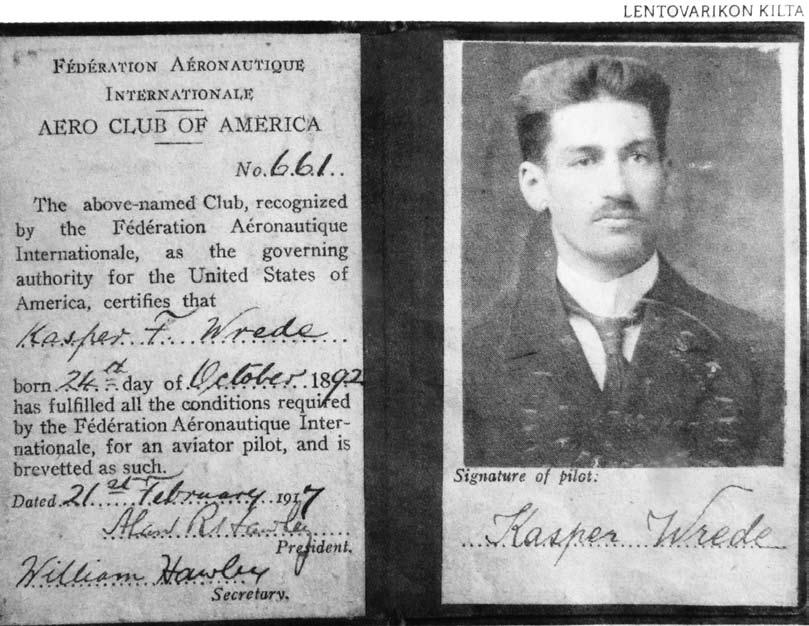 LENTOVARIKON KILTA
FÉDÉRATION AÉRONAUTIQUE
INTERNATIONALE
AERO CLUB OF AMERICA
No. 661..
The above-named Club, recognized
by the Fédération Aéronautique
Internationale, as the governing
authority for the United States of
America, certifies that
Kasper F. Wrede
born 24th day of October 1892
has fulfilled all the conditions required
by the Fédération Aéronautique Inter-
nationale, for an aviator pilot, and is
brevetted as such.
Dated 21st February 1917
Alan R. Hawley
President.
William Hawley
Secretary.
Signature of pilot:
Kasper Wrede